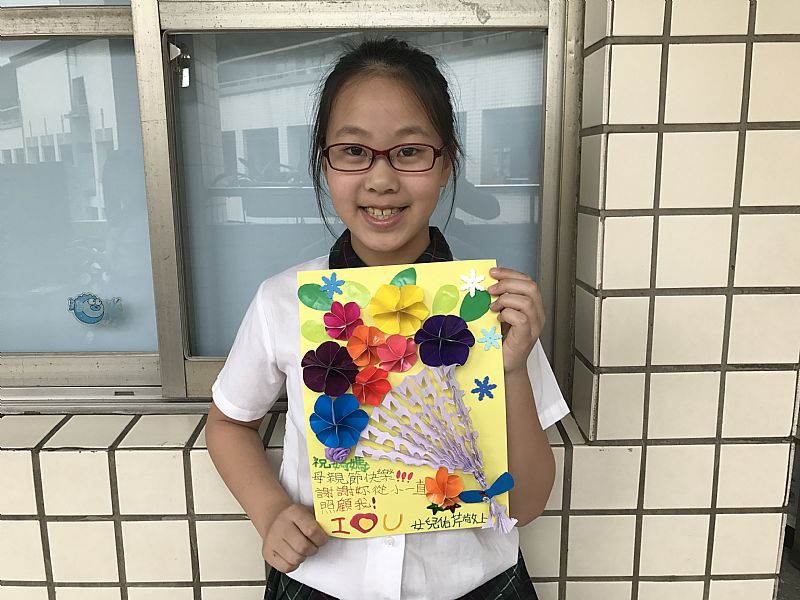 祝媽媽
母親節快樂!!!
謝謝妳從小一直
照顧我!
I O U
女兒佑芹敬上